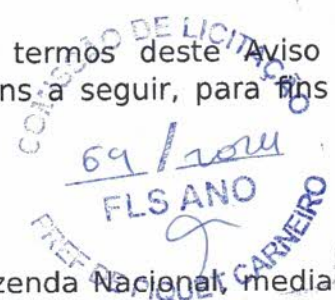 termos deste Aviso
ns a seguir, para fins
COMISSÃO DE LICITAÇÃO
69 / 2024
FLS ANO
PREF DE PIQUET CARNEIRO
zenda Nacional, media